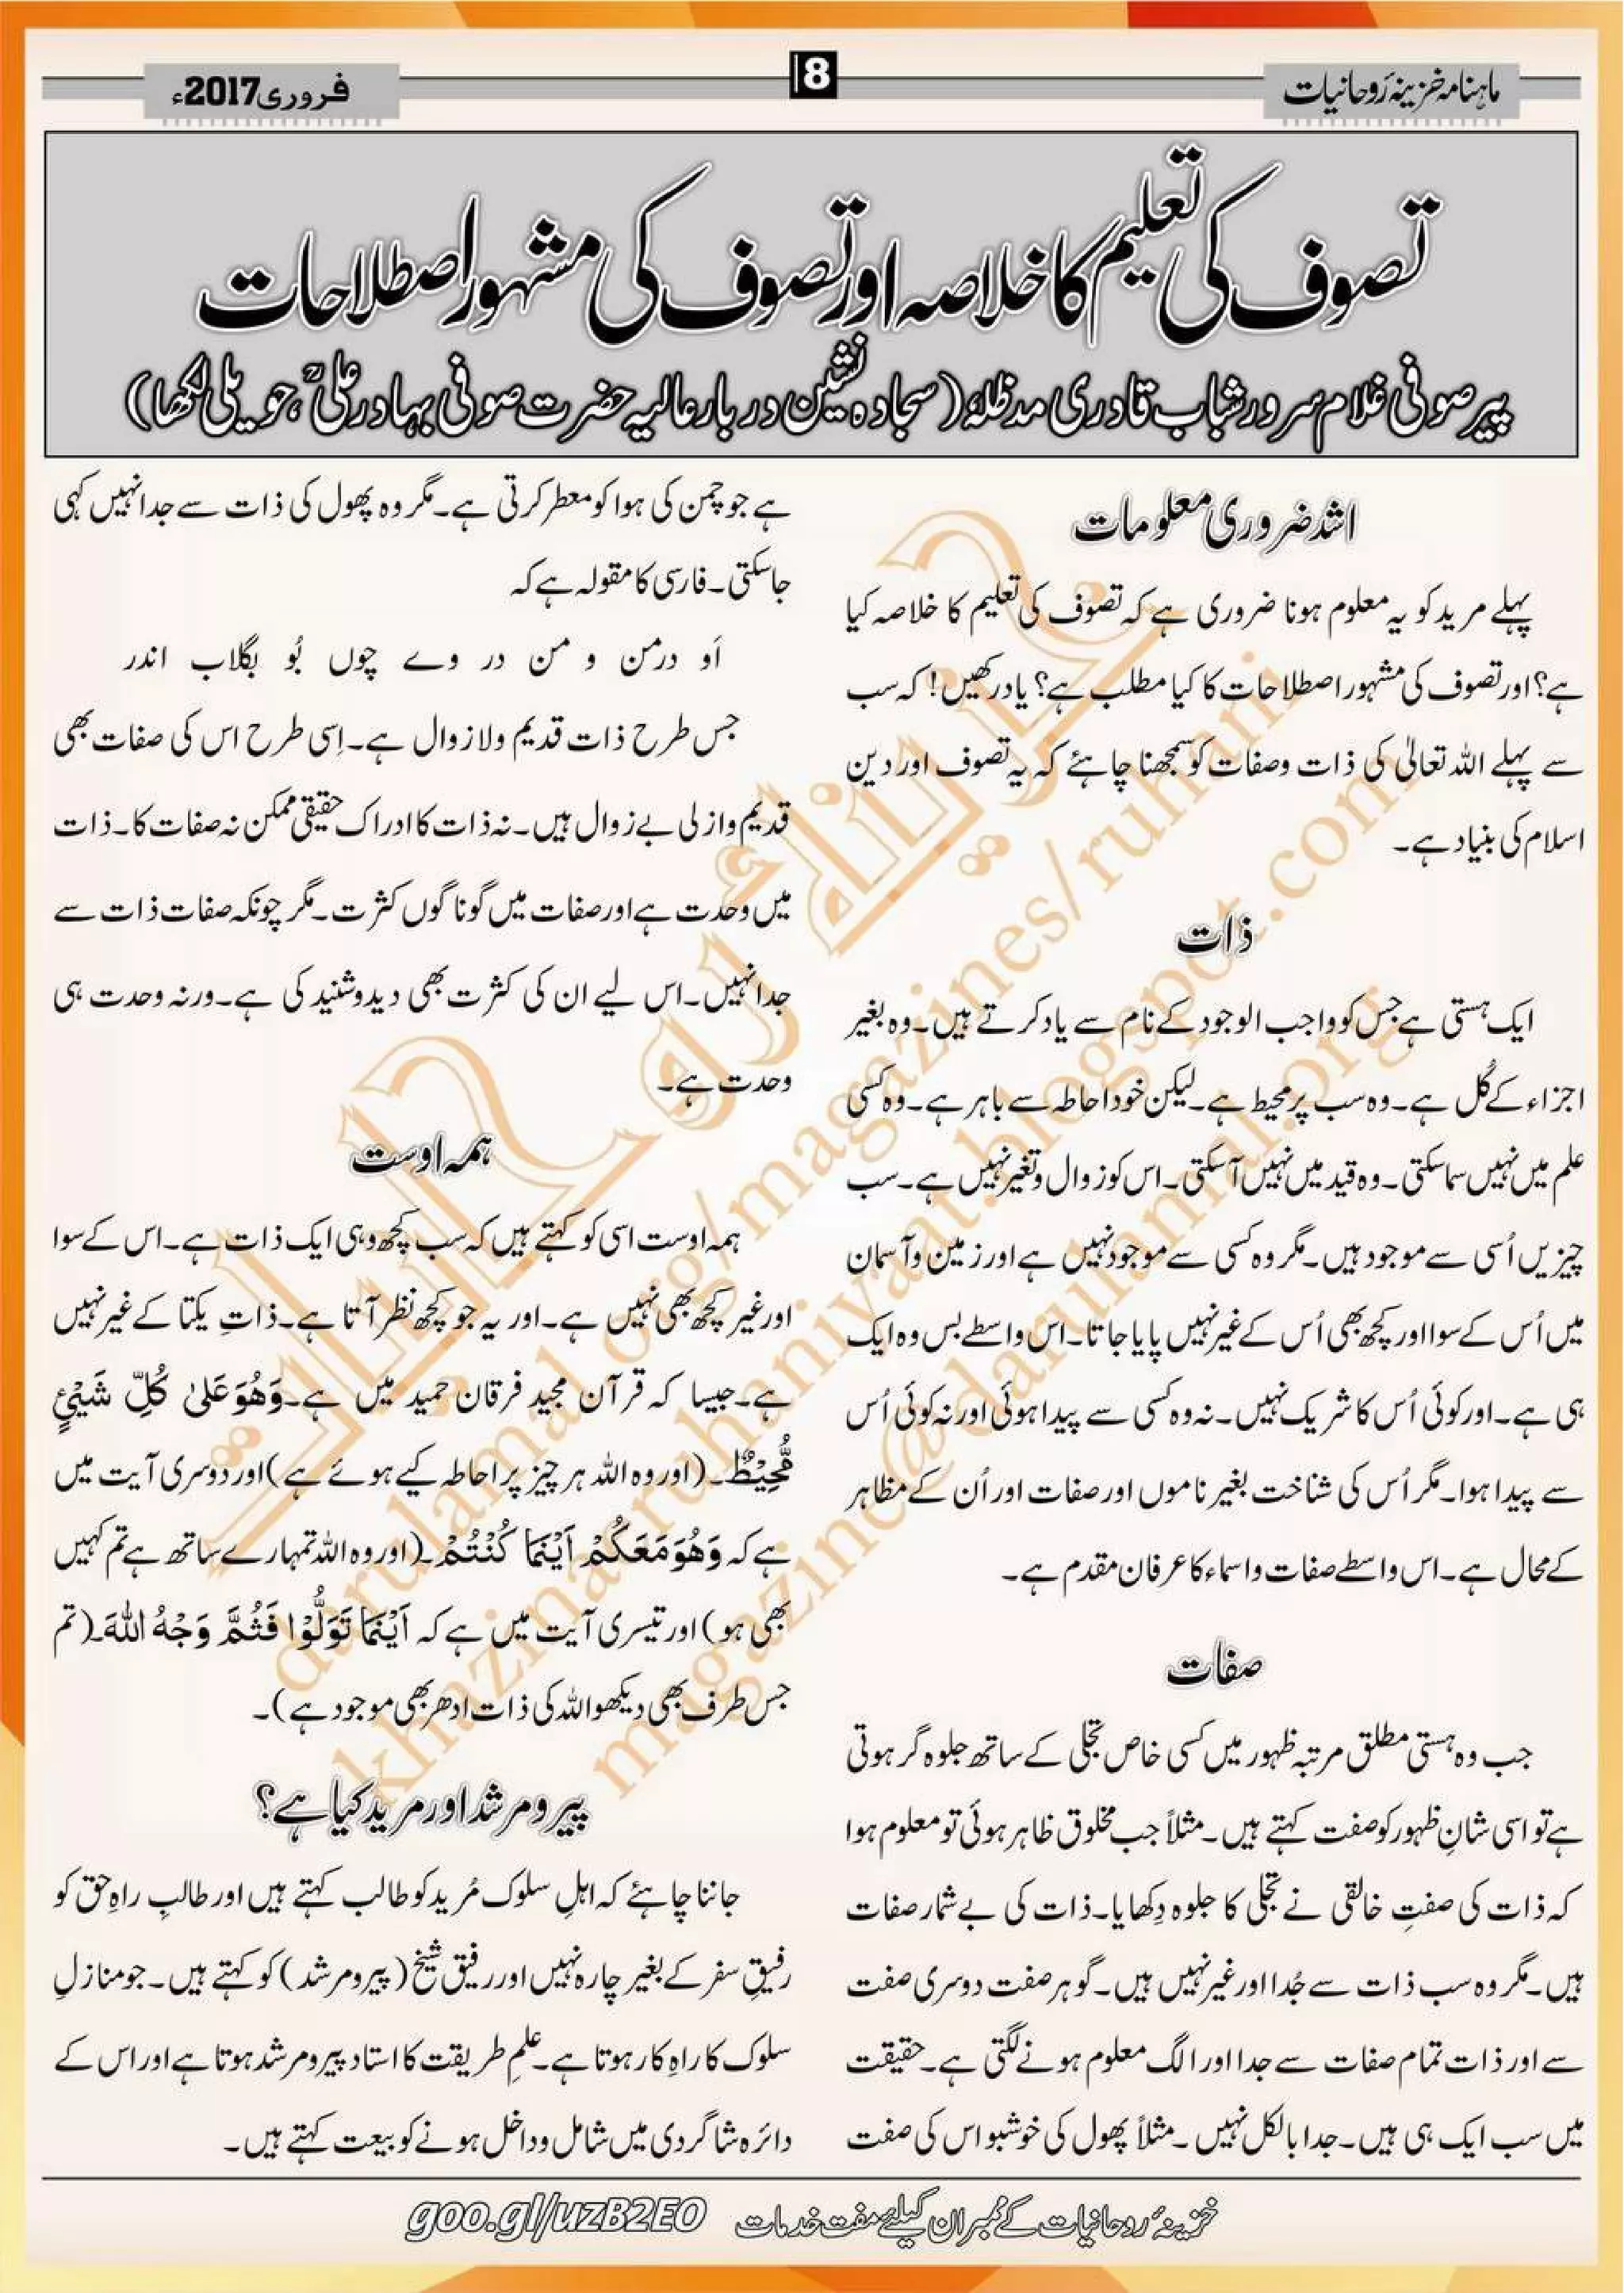 ماہنامہ خزینۂ روحانیات
8
فروری 2017ء
تصوف کی تعلیم کا خلاصہ اور تصوف کی مشہور اصطلاحات
پیر صوفی غلام سرور شباب قادری مدظلہٗ (سجادہ نشین دربار عالیہ حضرت صوفی بہادر علیؒ، حویلی لکھا)
اشد ضروری معلومات
پہلے مرید کو یہ معلوم ہونا ضروری ہے کہ تصوف کی تعلیم کا خلاصہ کیا
ہے؟ اور تصوف کی مشہور اصطلاحات کا کیا مطلب ہے؟ یاد رکھیں! کہ سب
سے پہلے اللہ تعالیٰ کی ذات وصفات کو سمجھنا چاہئے کہ یہ تصوف اور دین
اسلام کی بنیاد ہے۔
ذات
ایک ہستی ہے جس کو واجب الوجود کے نام سے یاد کرتے ہیں۔ وہ بغیر
اجزاء کے کُل ہے۔ وہ سب پر محیط ہے۔ لیکن خود احاطہ سے باہر ہے۔ وہ کسی
علم میں نہیں سما سکتی۔ وہ قید میں نہیں آسکتی۔ اس کو زوال وتغیر نہیں ہے۔ سب
چیزیں اُسی سے موجود ہیں۔ مگر وہ کسی سے موجود نہیں ہے اور زمین وآسمان
میں اُس کے سوا اور کچھ بھی اُس کے غیر نہیں پایا جاتا۔ اس واسطے بس وہ ایک
ہی ہے۔ اور کوئی اُس کا شریک نہیں۔ نہ وہ کسی سے پیدا ہوئی اور نہ کوئی اُس
سے پیدا ہوا۔ مگر اُس کی شناخت بغیر ناموں اور صفات اور اُن کے مظاہر
کے محال ہے۔ اس واسطے صفات واسماء کا عرفان مقدم ہے۔
صفات
جب وہ ہستی مطلق مرتبہ ظہور میں کسی خاص تجلی کے ساتھ جلوہ گر ہوتی
ہے تو اسی شانِ ظہور کو صفت کہتے ہیں۔ مثلاً جب مخلوق ظاہر ہوئی تو معلوم ہوا
کہ ذات کی صفتِ خالقی نے تجلی کا جلوہ دِکھایا۔ ذات کی بے شمار صفات
ہیں۔ مگر وہ سب ذات سے جُدا اور غیر نہیں ہیں۔ گو ہر صفت دوسری صفت
سے اور ذات تمام صفات سے جدا اور الگ معلوم ہونے لگتی ہے۔ حقیقت
میں سب ایک ہی ہیں۔ جدا بالکل نہیں۔ مثلاً پھول کی خوشبو اس کی صفت
ہے جو چمن کی ہوا کو معطر کرتی ہے۔ مگر وہ پھول کی ذات سے جدا نہیں کہی
جاسکتی۔ فارسی کا مقولہ ہے کہ
اَو درمن و من در وے چوں بُو بگلاب اندر
جس طرح ذات قدیم ولازوال ہے۔ اِسی طرح اس کی صفات بھی
قدیم وازلی بے زوال ہیں۔ نہ ذات کا ادراک حقیقی ممکن نہ صفات کا۔ ذات
میں وحدت ہے اور صفات میں گوناگوں کثرت۔ مگر چونکہ صفات ذات سے
جدا نہیں۔ اس لیے ان کی کثرت بھی دیدوشنید کی ہے۔ ورنہ وحدت ہی
وحدت ہے۔
ہمہ اوست
ہمہ اوست اسی کو کہتے ہیں کہ سب کچھ وہی ایک ذات ہے۔ اس کے سوا
اور غیر کچھ بھی نہیں ہے۔ اور یہ جو کچھ نظر آتا ہے۔ ذاتِ یکتا کے غیر نہیں
ہے۔ جیسا کہ قرآن مجید فرقان حمید میں ہے۔ وَهُوَ عَلىٰ كُلِّ شَيْئٍ
مُّحِيْطٌ۔ (اور وہ اللہ ہر چیز پر احاطہ کیے ہوئے ہے) اور دوسری آیت میں
ہے کہ وَهُوَ مَعَكُمْ اَيْنَمَا كُنْتُمْ۔ (اور وہ اللہ تمہارے ساتھ ہے تم کہیں
بھی ہو) اور تیسری آیت میں ہے کہ اَيْنَمَا تَوَلُّوْا فَثُمَّ وَجْهُ اللّٰهَ۔ (تم
جس طرف بھی دیکھو اللہ کی ذات ادھر بھی موجود ہے)۔
پیر ومرشد اور مرید کیا ہے؟
جاننا چاہئے کہ اہلِ سلوک مُرید کو طالب کہتے ہیں اور طالبِ راہِ حق کو
رفیقِ سفر کے بغیر چارہ نہیں اور رفیق شیخ (پیر ومرشد) کو کہتے ہیں۔ جو منازلِ
سلوک کا راہِ کار ہوتا ہے۔ علمِ طریقت کا استاد پیر ومرشد ہوتا ہے اور اس کے
دائرہ شاگردی میں شامل وداخل ہونے کو بیعت کہتے ہیں۔
خزینۂ روحانیات کے ممبران کیلئے مفت خدمات goo.gl/uzB2EO
خزینۂ روحانیات
darulamal.org/magazines/ruhani
khazinaruhaniyaat.blogspot.com
magazine@darulamal.org